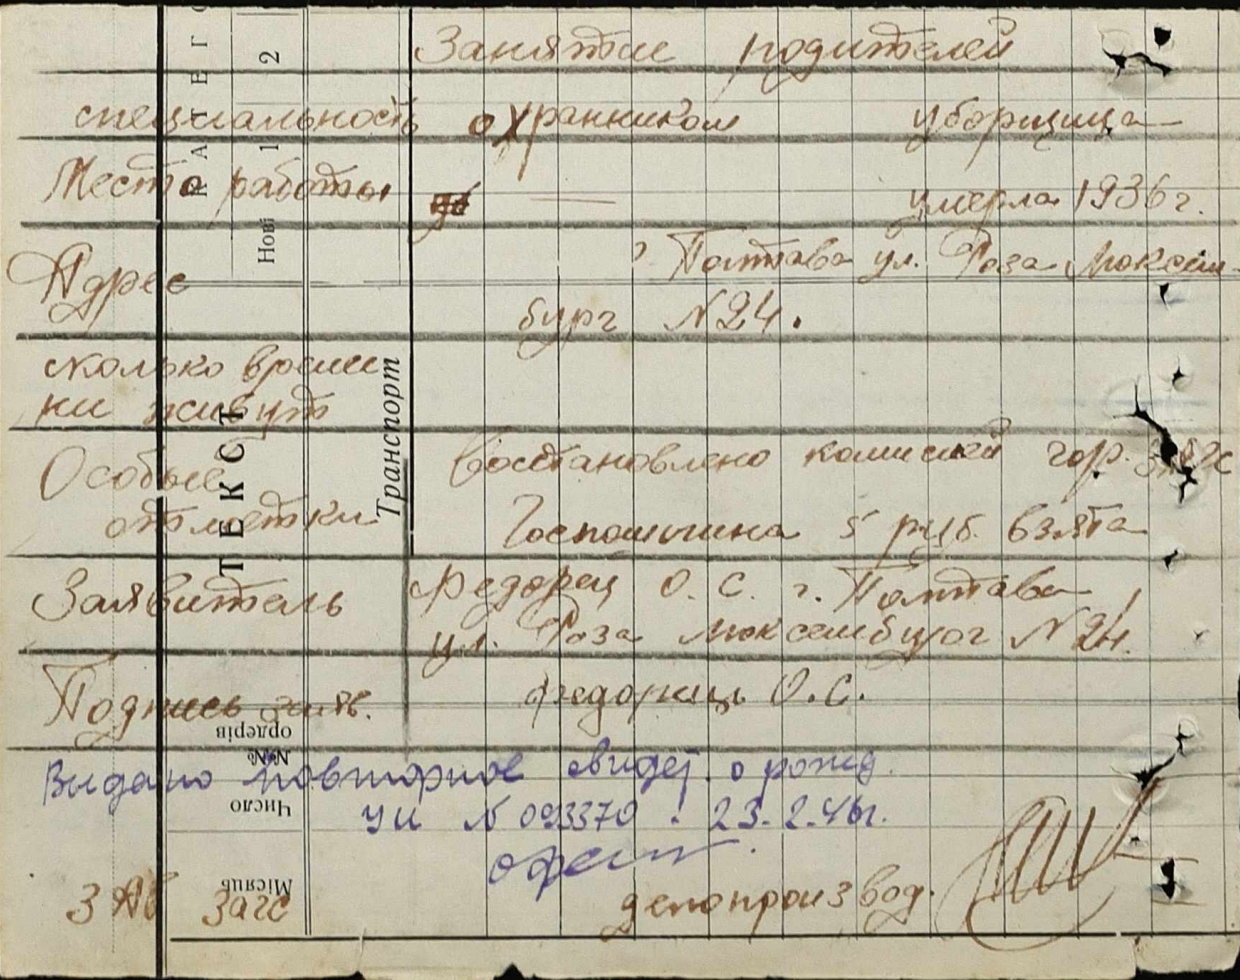 Занятие родителей
специальность охранником уборщица
Место работы — умерла 1936 г.
Адрес г Полтава ул. Роза Люксем-
бург №24.
сколько време
ни живут
Особые Восстановлено комисией гор. ЗАГС
отметки Госпошлина 5 руб. взята
Заявитель Федорец О. С. г. Полтава,
ул. Роза Люксембург №24.
Подпись заяв. Федорець О.С.
Выдано повторное свидет. о рожд.
УИ № 093370. 23.2.46г.
З ЗАГС делопроизвод.
КАТЕГО
Нові 1 2
ТЕКСТ
Транспорт
№№ ордерів
Число
Місяць